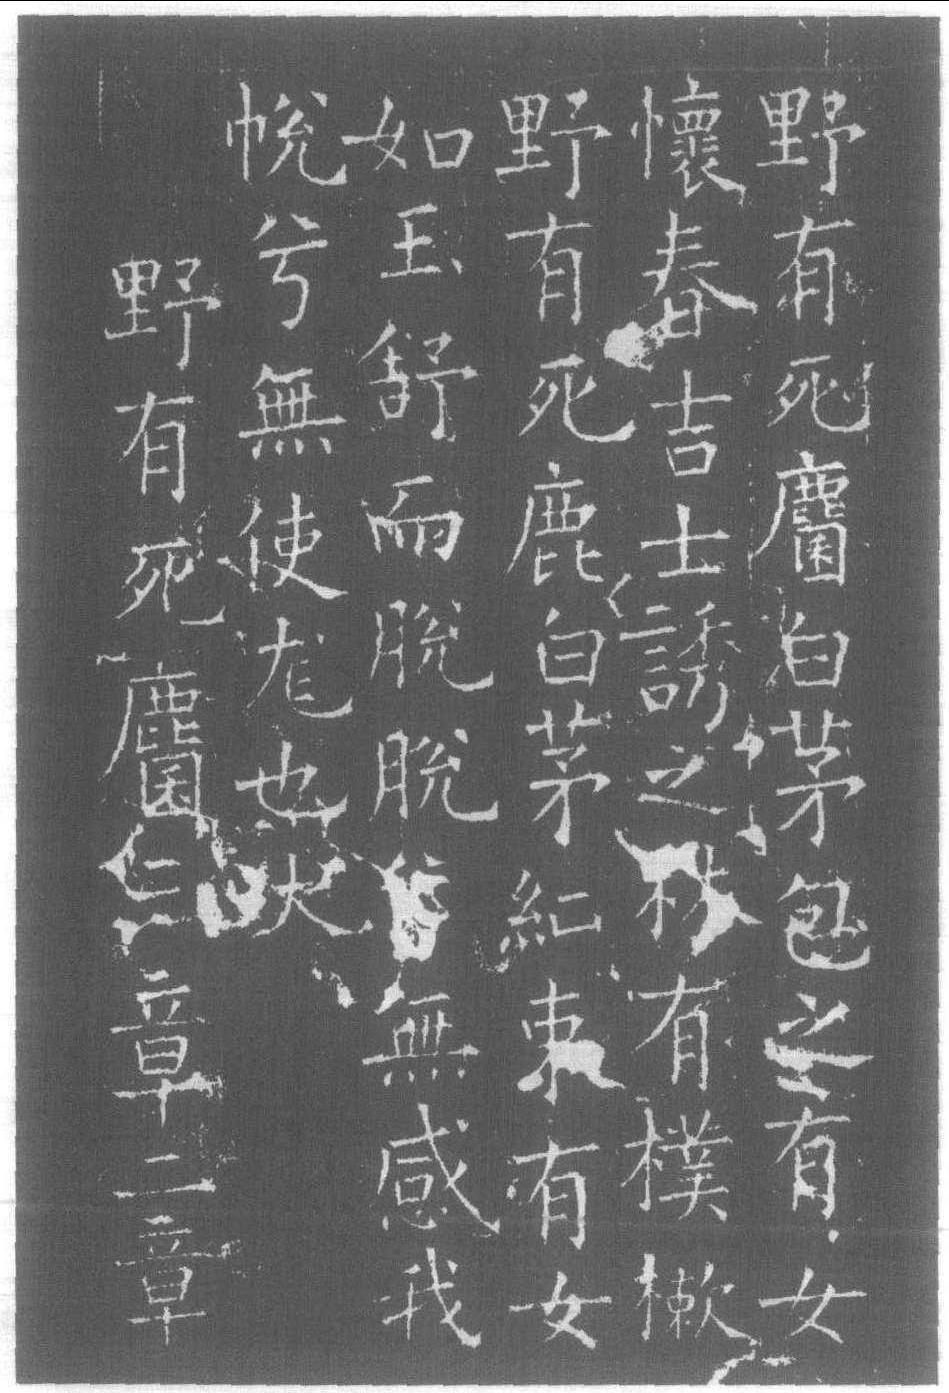 野有死麕白茅包之有女
懷春吉士誘之林有樸樕
野有死鹿白茅純束有女
如玉舒而脫脫兮無感我
帨兮無使尨也吠
野有死麕三章二章